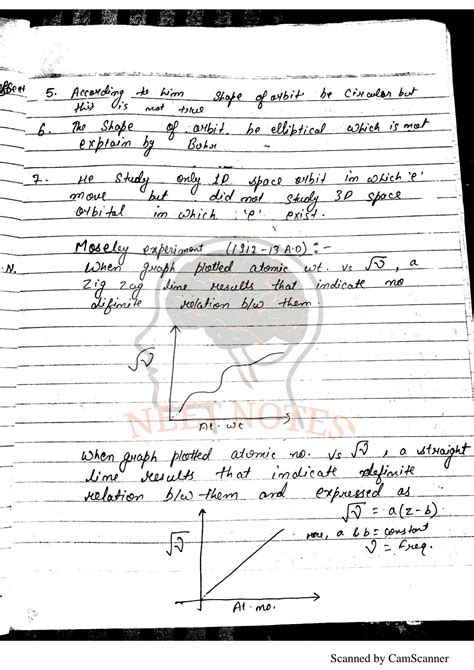 ffect
5. According to him shape of orbit be circular but
this is not true
6. The shape of orbit be elliptical which is not
explain by Bohr
7. He study only 1D space orbit in which 'e'
move but did not study 3D space
orbital in which 'e' exist.
Moseley experiment (1912-13 A.D) :-
N. When graph plotted atomic wt. vs √ν, a
zig zag line results that indicate no
difinite relation b/w them.
√ν
At. wt
NEET NOTES
When graph plotted atomic no. vs √ν, a straight
line results that indicate definite
relation b/w them and expressed as
√ν = a(z-b)
√ν
here, a & b = constant
ν = Freq.
At. no.
Scanned by CamScanner